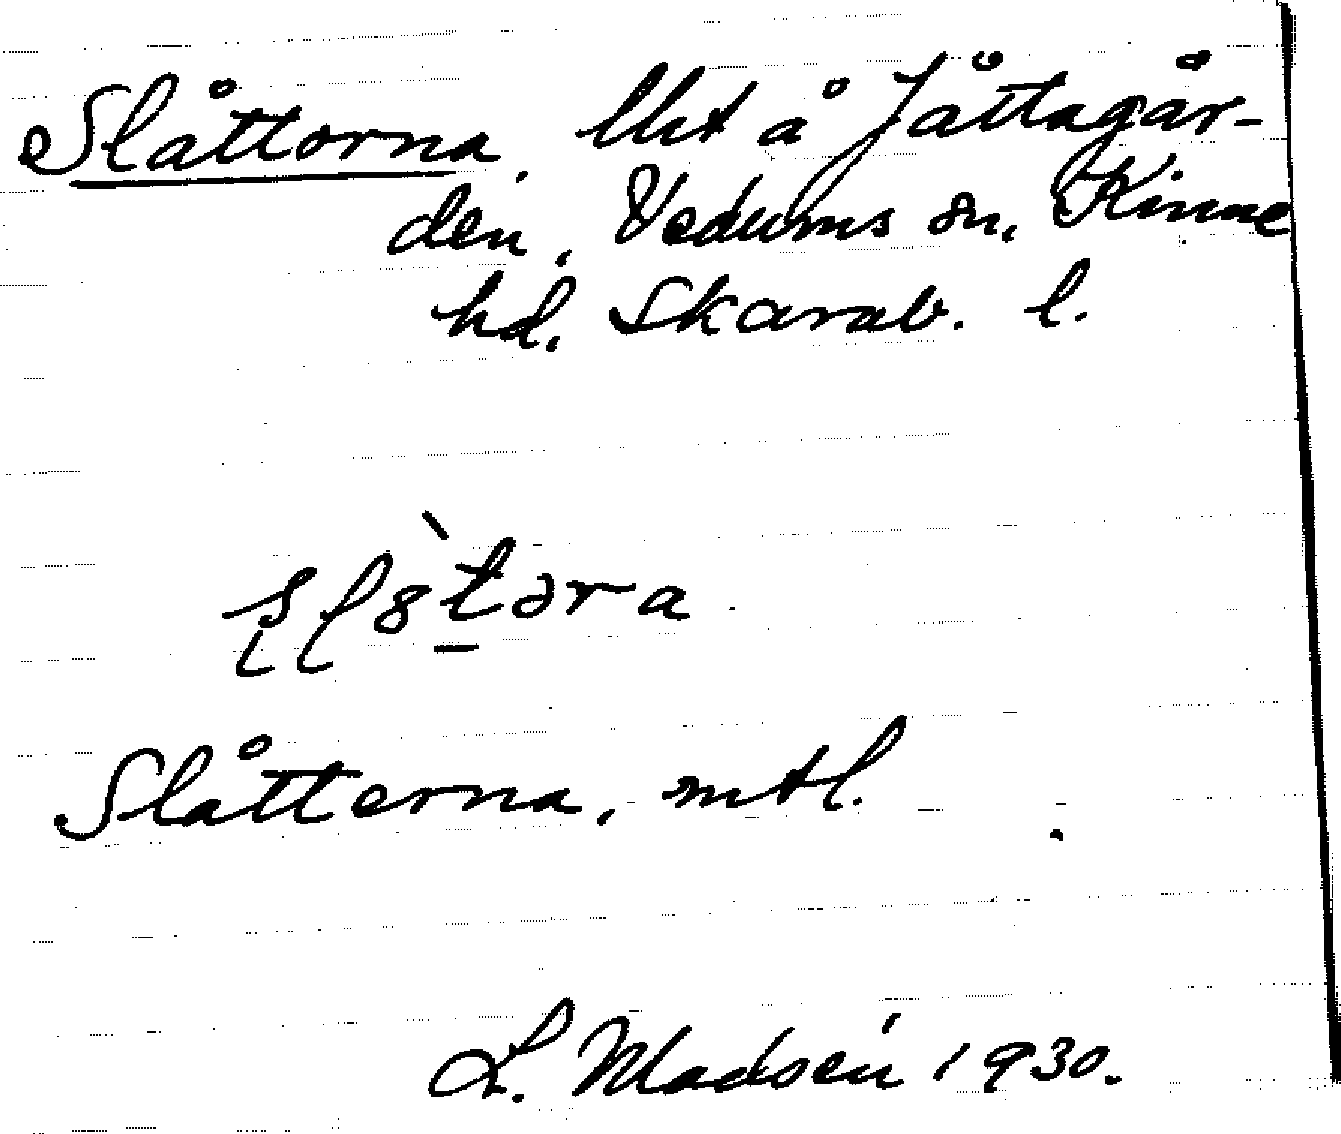 Slåttorna, lht å Jåttagår-
den, Vedums sn, Kinne
hd, Skarab. l.
Slåtterna, mtl.
L. Madsén 1930.